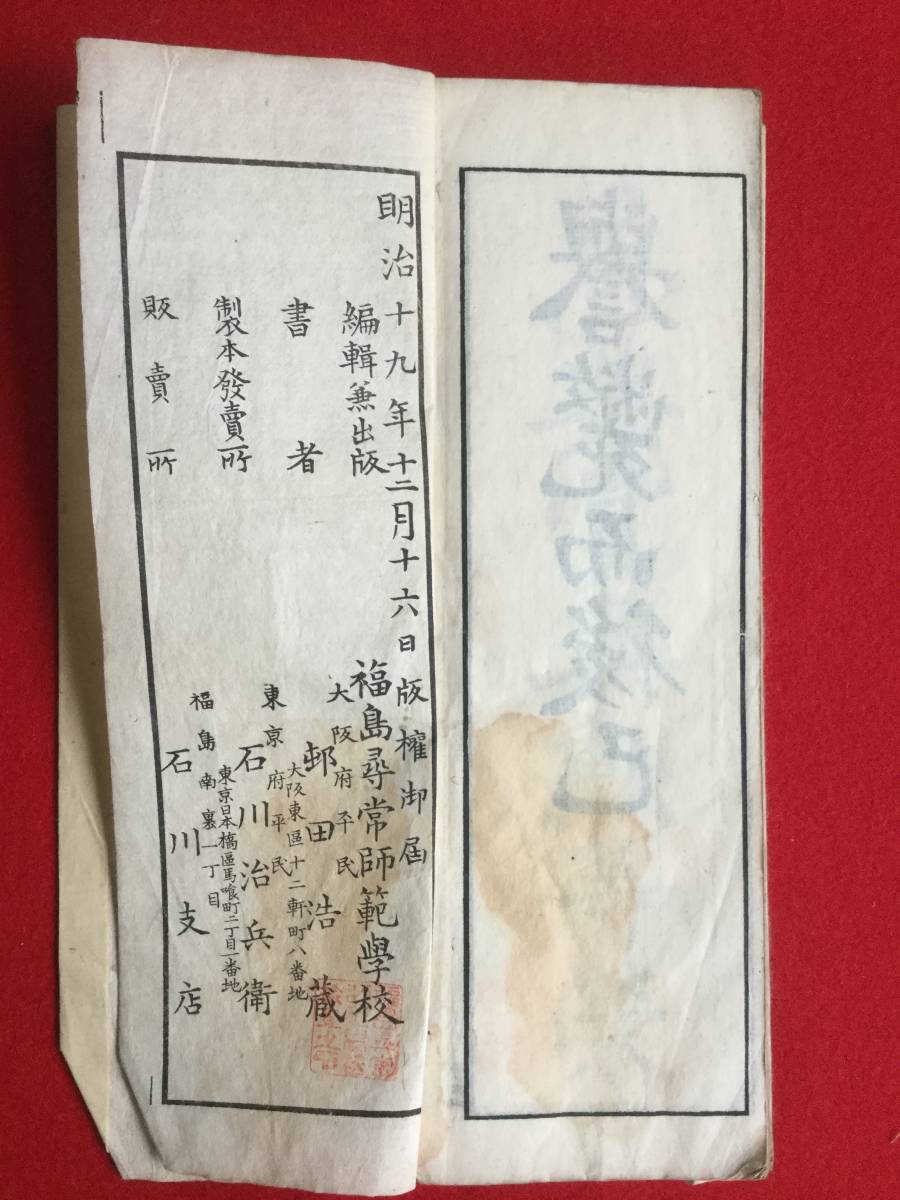 明治十九年十二月十六日版權御屆
編輯兼出版 福島尋常師範學校
書者 大阪府平民 邨田浩蔵
大阪東區十二軒町八番地
製本發賣所 東京府平民 石川治兵衛
東京日本橋區馬喰町二丁目一番地
販賣所 福島南裏一丁目 石川支店
而後已